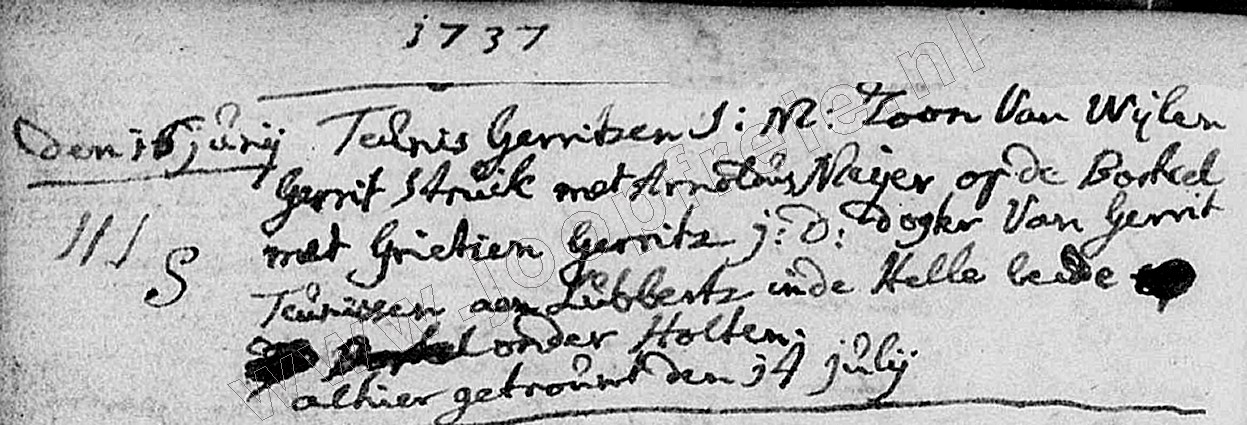 1737
den 16 junij Teunis Gerritsen J: M: Zoon Van Wijlen
Gerrit Struik met Arnoldus Meijer op de Borkel
met Grietien Gerrits j: D: dogter Van Gerrit
Teunissen aan Lubberts inde Helle beide op
onder Holten.
alhier getrouwt den 14 julij
111 S
www.joopfreie.nl